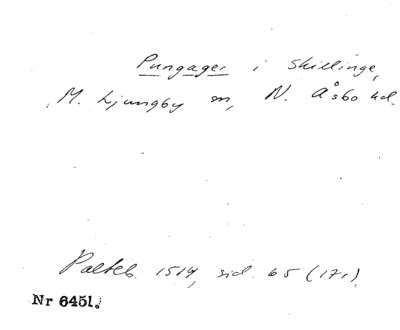 Pungager i Skillinge,
M. Ljungby sn, N. Åsbo hd.
Palteb. 1514, sid. 65 (171)
Nr 6451.